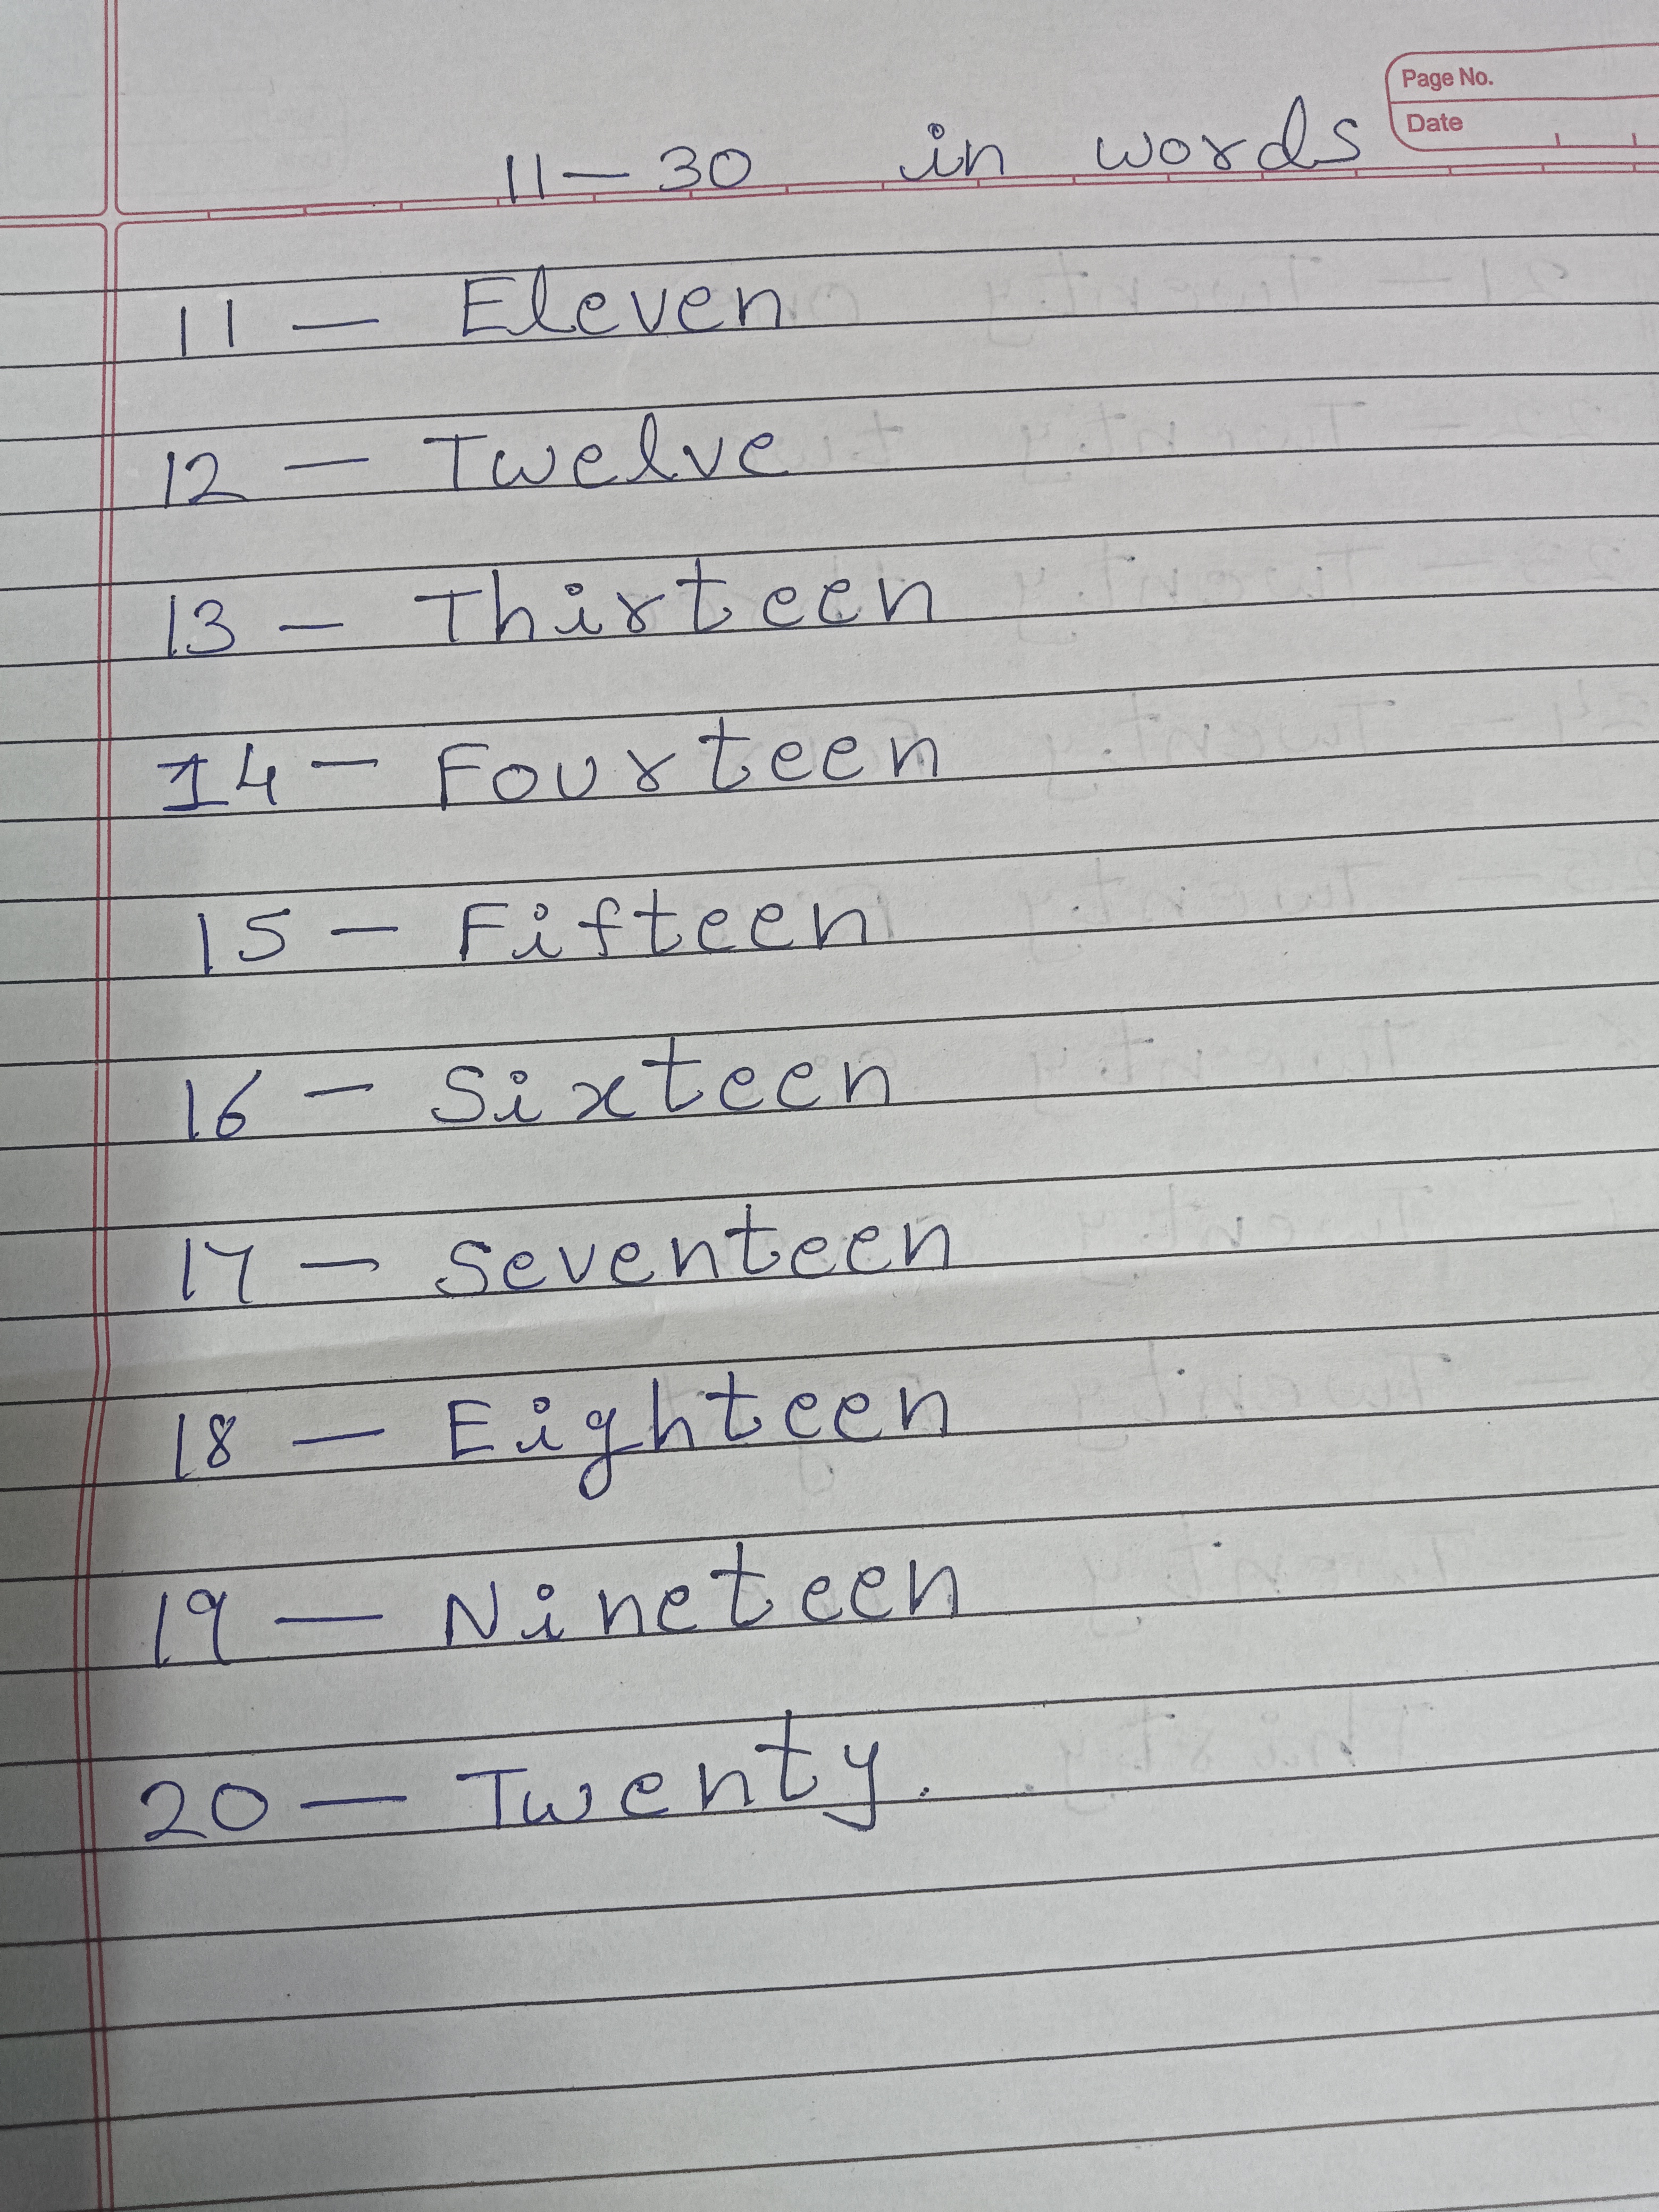 Page No.
Date
11 — 30 in words
11 — Eleven
12 — Twelve
13 — Thirteen
14 — Fourteen
15 — Fifteen
16 — Sixteen
17 — Seventeen
18 — Eighteen
19 — Nineteen
20 — Twenty.